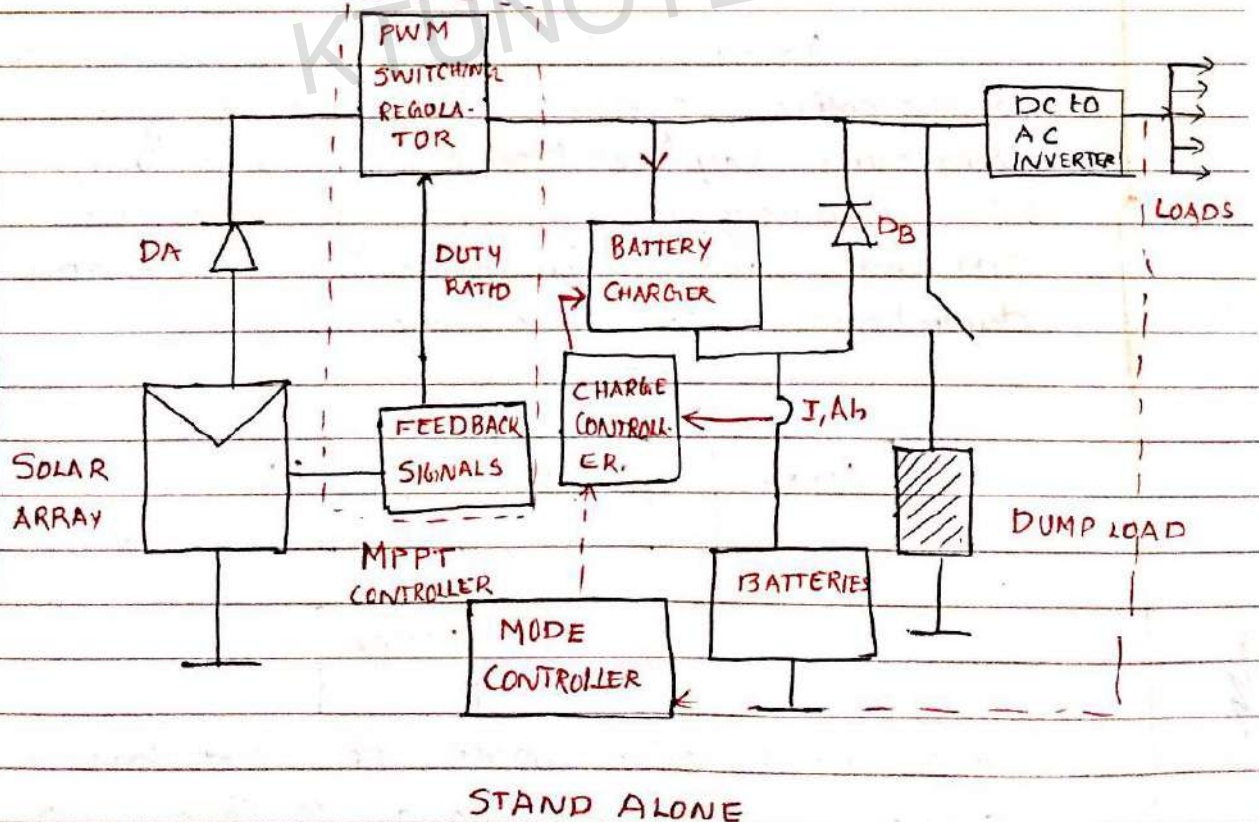 KTUNOTE
PWM
SWITCHING
REGULA-
TOR
DC to
AC
INVERTER
LOADS
DA
DUTY
RATIO
BATTERY
CHARGER
DB
CHARGE
CONTROLL-
ER.
I, Ah
FEEDBACK
SIGNALS
SOLAR
ARRAY
MPPT
CONTROLLER
BATTERIES
DUMP LOAD
MODE
CONTROLLER
STAND ALONE